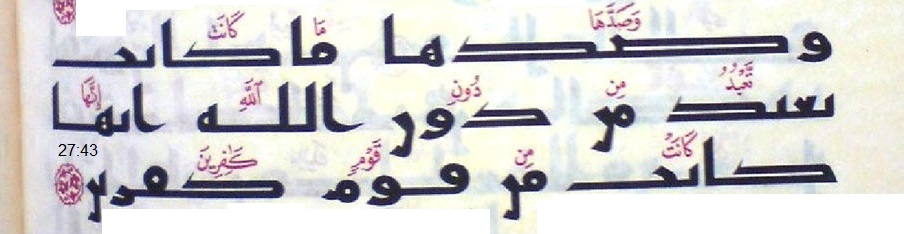 وَصَدَّهَا مَا كَانَت
وصدها ما كانت
تَّعْبُدُ مِن دُونِ ٱللَّهِ إِنَّهَا
تعبد من دون الله انها
27:43
كَانَتْ مِن قَوْمٍ كَٰفِرِينَ
كانت من قوم كفرين